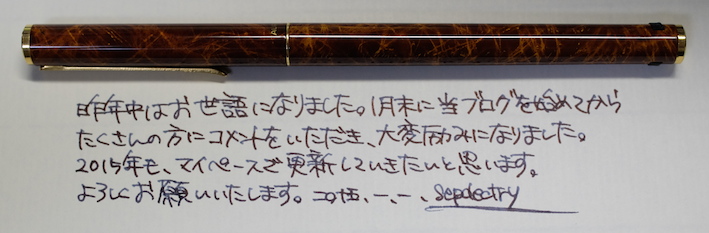 昨年中はお世話になりました。1月末に当ブログを始めてから
たくさんの方にコメントをいただき、大変励みになりました。
2015年も、マイペースで更新していきたいと思います。
よろしくお願いいたします。